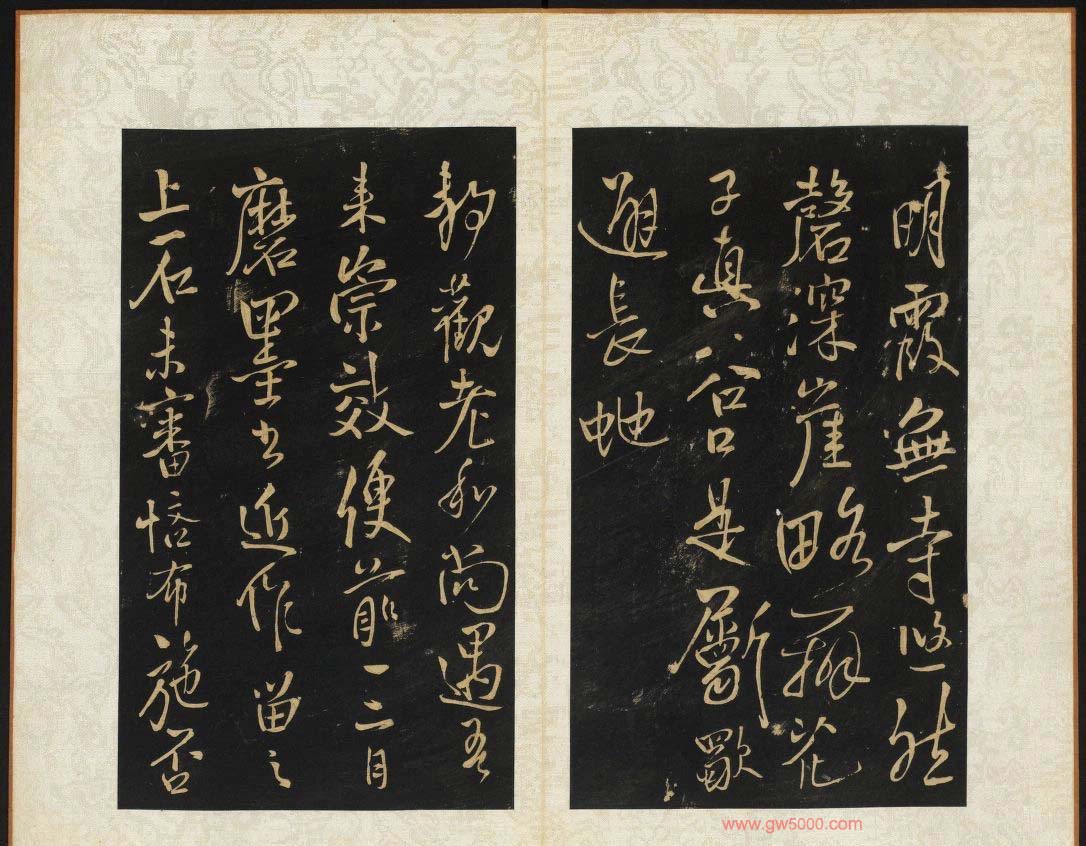 明霞無寺悠然
磬深崖略辨花
子真谷口是
避長虵
静觀老和尚遇吾
来崇效便前一二月
磨墨書近作留之
上石未審恪布施否
www.gw5000.com